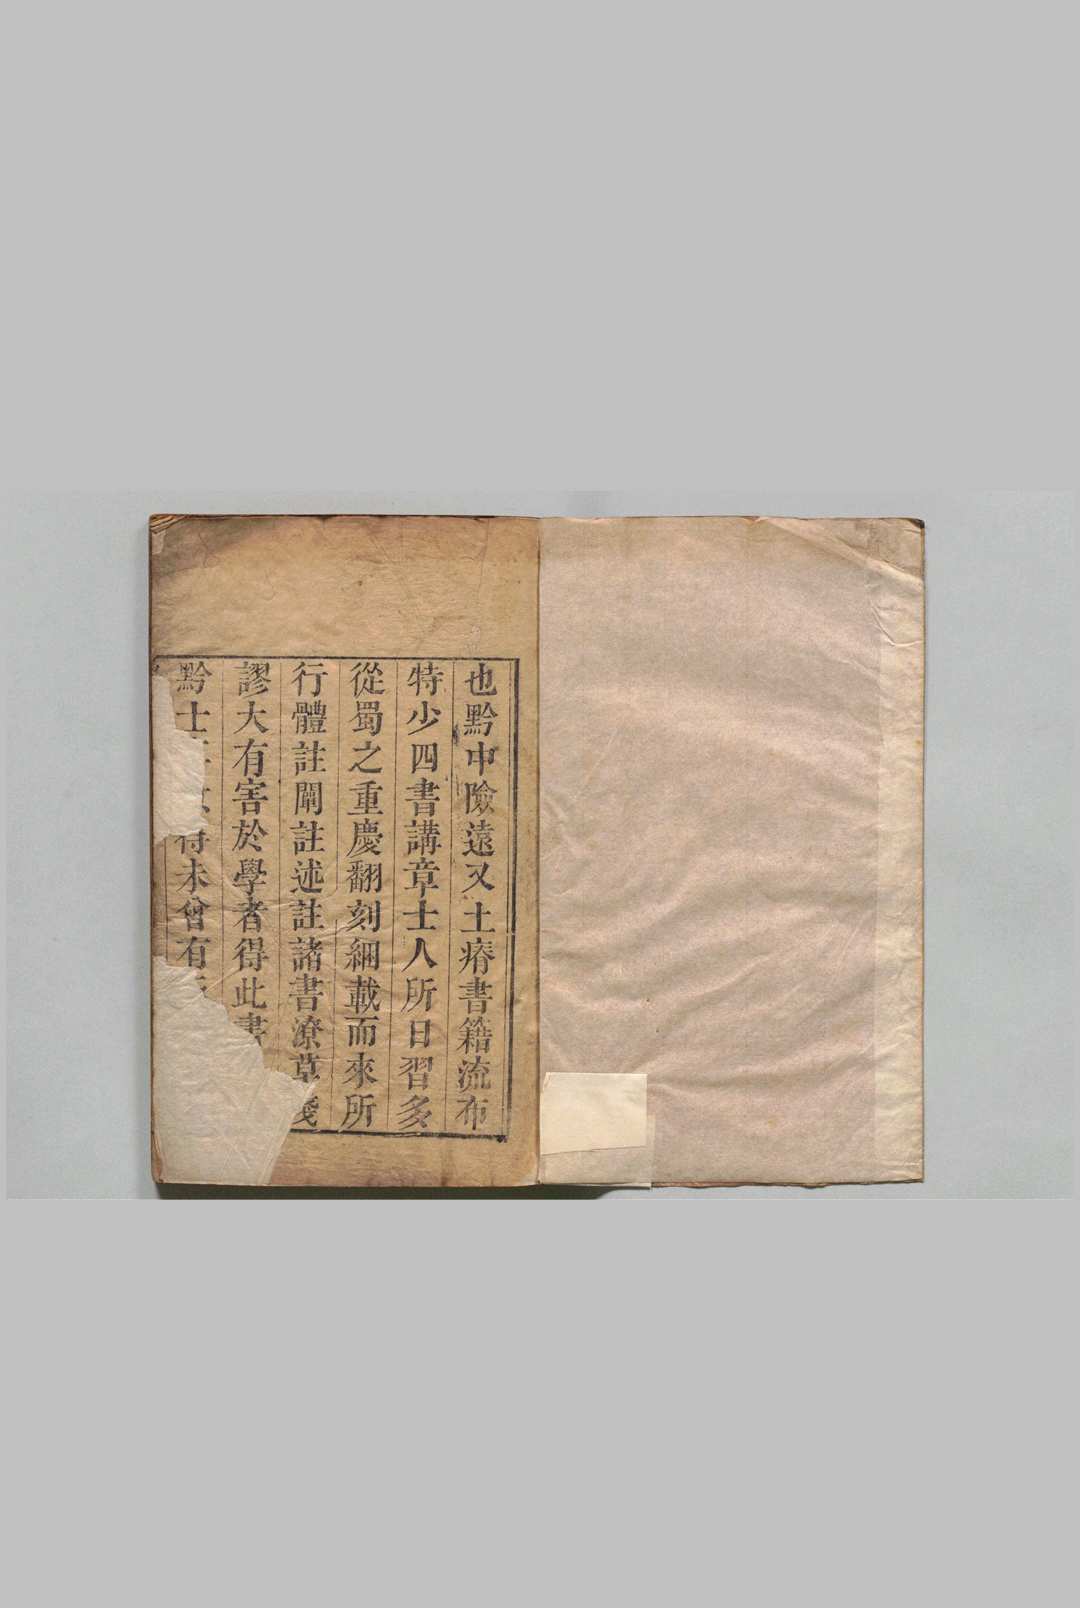 也黔中險遠又土瘠書籍流布
特少四書講章士人所日習多
從蜀之重慶翻刻綑載而來所
行體註闡註述註諸書潦草殘
謬大有害於學者得此書
黔士得未曾有